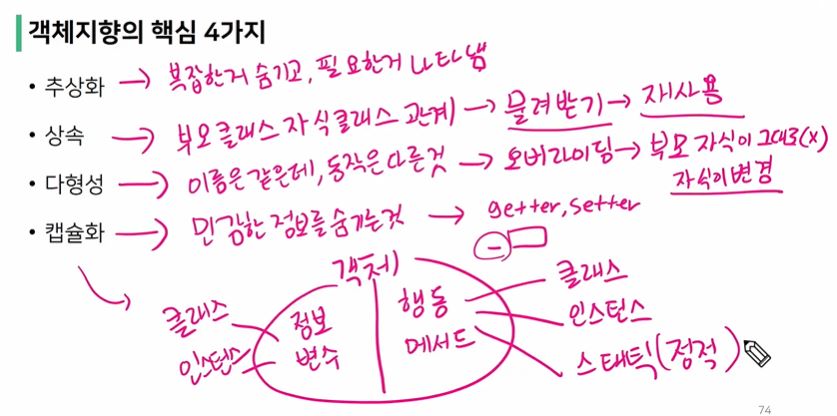 객체지향의 핵심 4가지
• 추상화 → 복잡한거 숨기고, 필요한거 나타냄
• 상속 → 부모클래스 자식클래스 관계 → 물려받기 → 재사용
• 다형성 → 이름은 같은데, 동작은 다른것 → 오버라이딩 → 부모 자식이 그대로(x)
자식이 변경
• 캡슐화 → 민감한 정보를 숨기는것 → getter, setter
−
객체
클래스
인스턴스
정보
변수
행동
메서드
클래스
인스턴스
스태틱(정적)
74